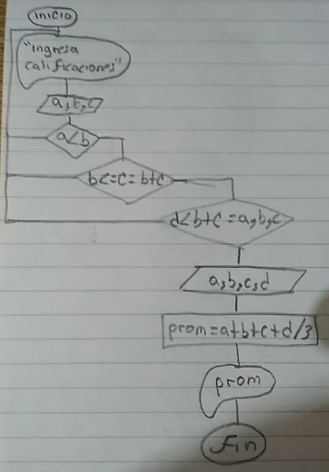 inicio
"ingresa
calificaciones"
a,b,c
a<b
b<=c=b+c
d<b+c=a,b,c
a,b,c,d
prom=a+b+c+d/3
prom
fin